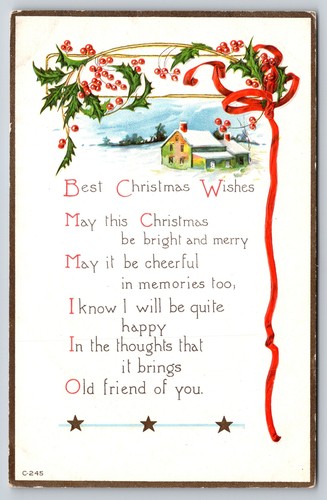 Best Christmas Wishes
May this Christmas
be bright and merry
May it be cheerful
in memories too,
I know I will be quite
happy
In the thoughts that
it brings
Old friend of you.
C-245